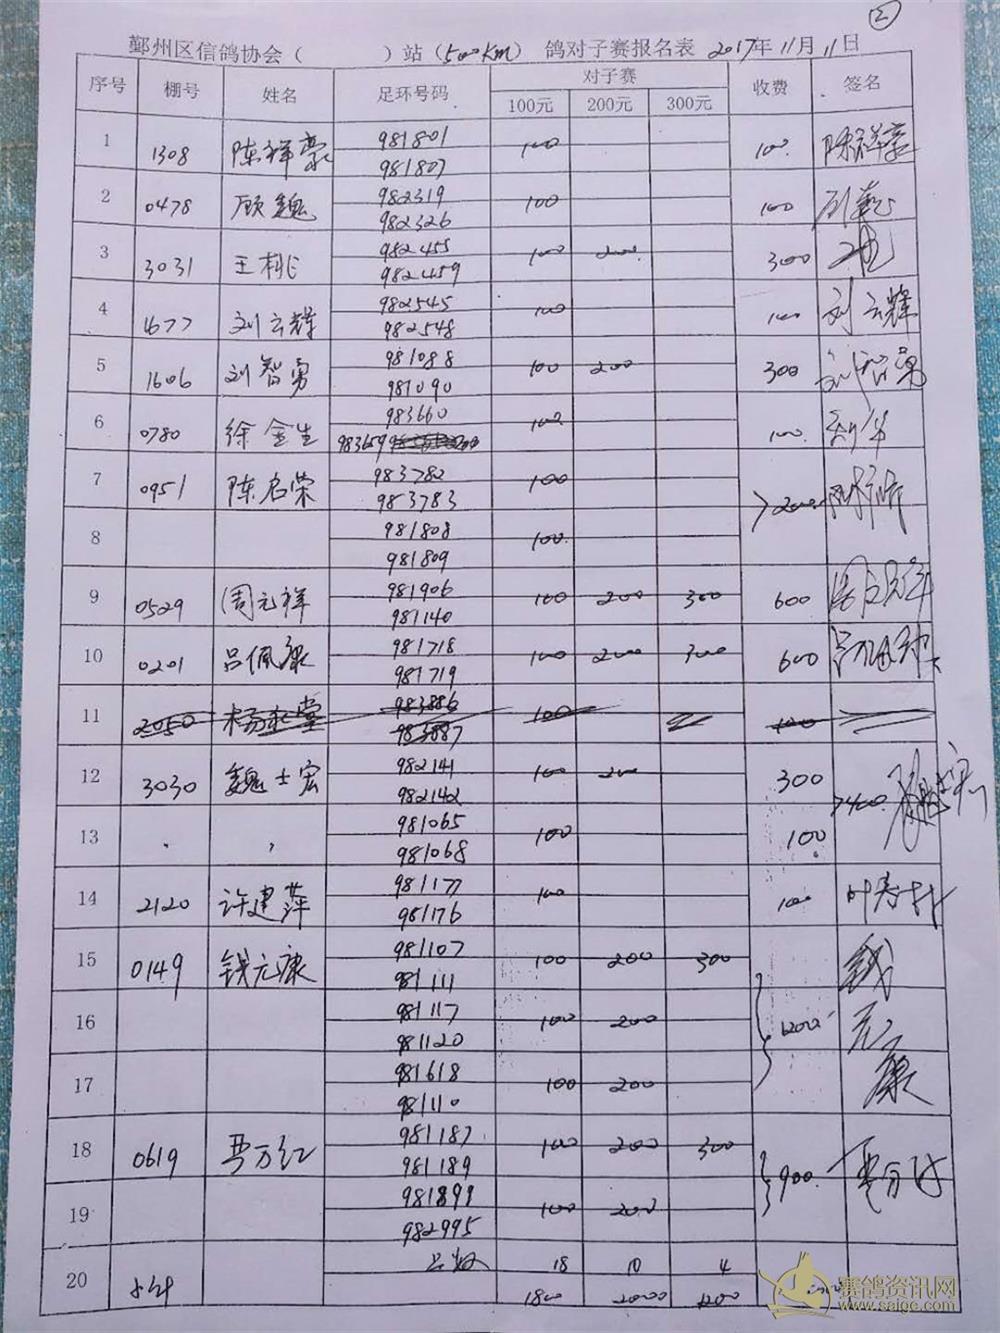 ②
鄞州区信鸽协会（ ）站（500KM） 鸽对子赛报名表 2017年11月11日
序号 棚号 姓名 足环号码 对子赛 收费 签名
100元 200元 300元
1 1308 陈祥豪 981801 100 100 陈祥豪
981807
2 0478 顾魏 982319 100 100
982326
3 3031 王桃 982455 100 200 300
982459
4 1677 刘云辉 982545 100 100 刘云辉
982548
5 1606 刘智勇 981088 100 200 300 刘智勇
981090
6 0780 徐金生 983660 100 100
983659
7 0951 陈启荣 983782 100 200
983783
8 981808 100
981809
9 0529 周元祥 981906 100 200 300 600
981140
10 0201 吕佩康 981718 100 200 300 600
981719
11 2050 杨永堂 983886 100 100
983887
12 3030 魏士宏 982141 100 200 300 400
982142
13 981065 100 100
981068
14 2120 许建萍 981177 100 100
981176
15 0149 钱元康 981107 100 200 300 1200 钱元康
981111
16 981117 100 200
981120
17 981618 100 200
981110
18 0619 981187 100 200 300 900
981189
19 981899 100 200
982995
20 小计 18 10 4
1800 2000 1200
赛鸽资讯网
www.saige.com